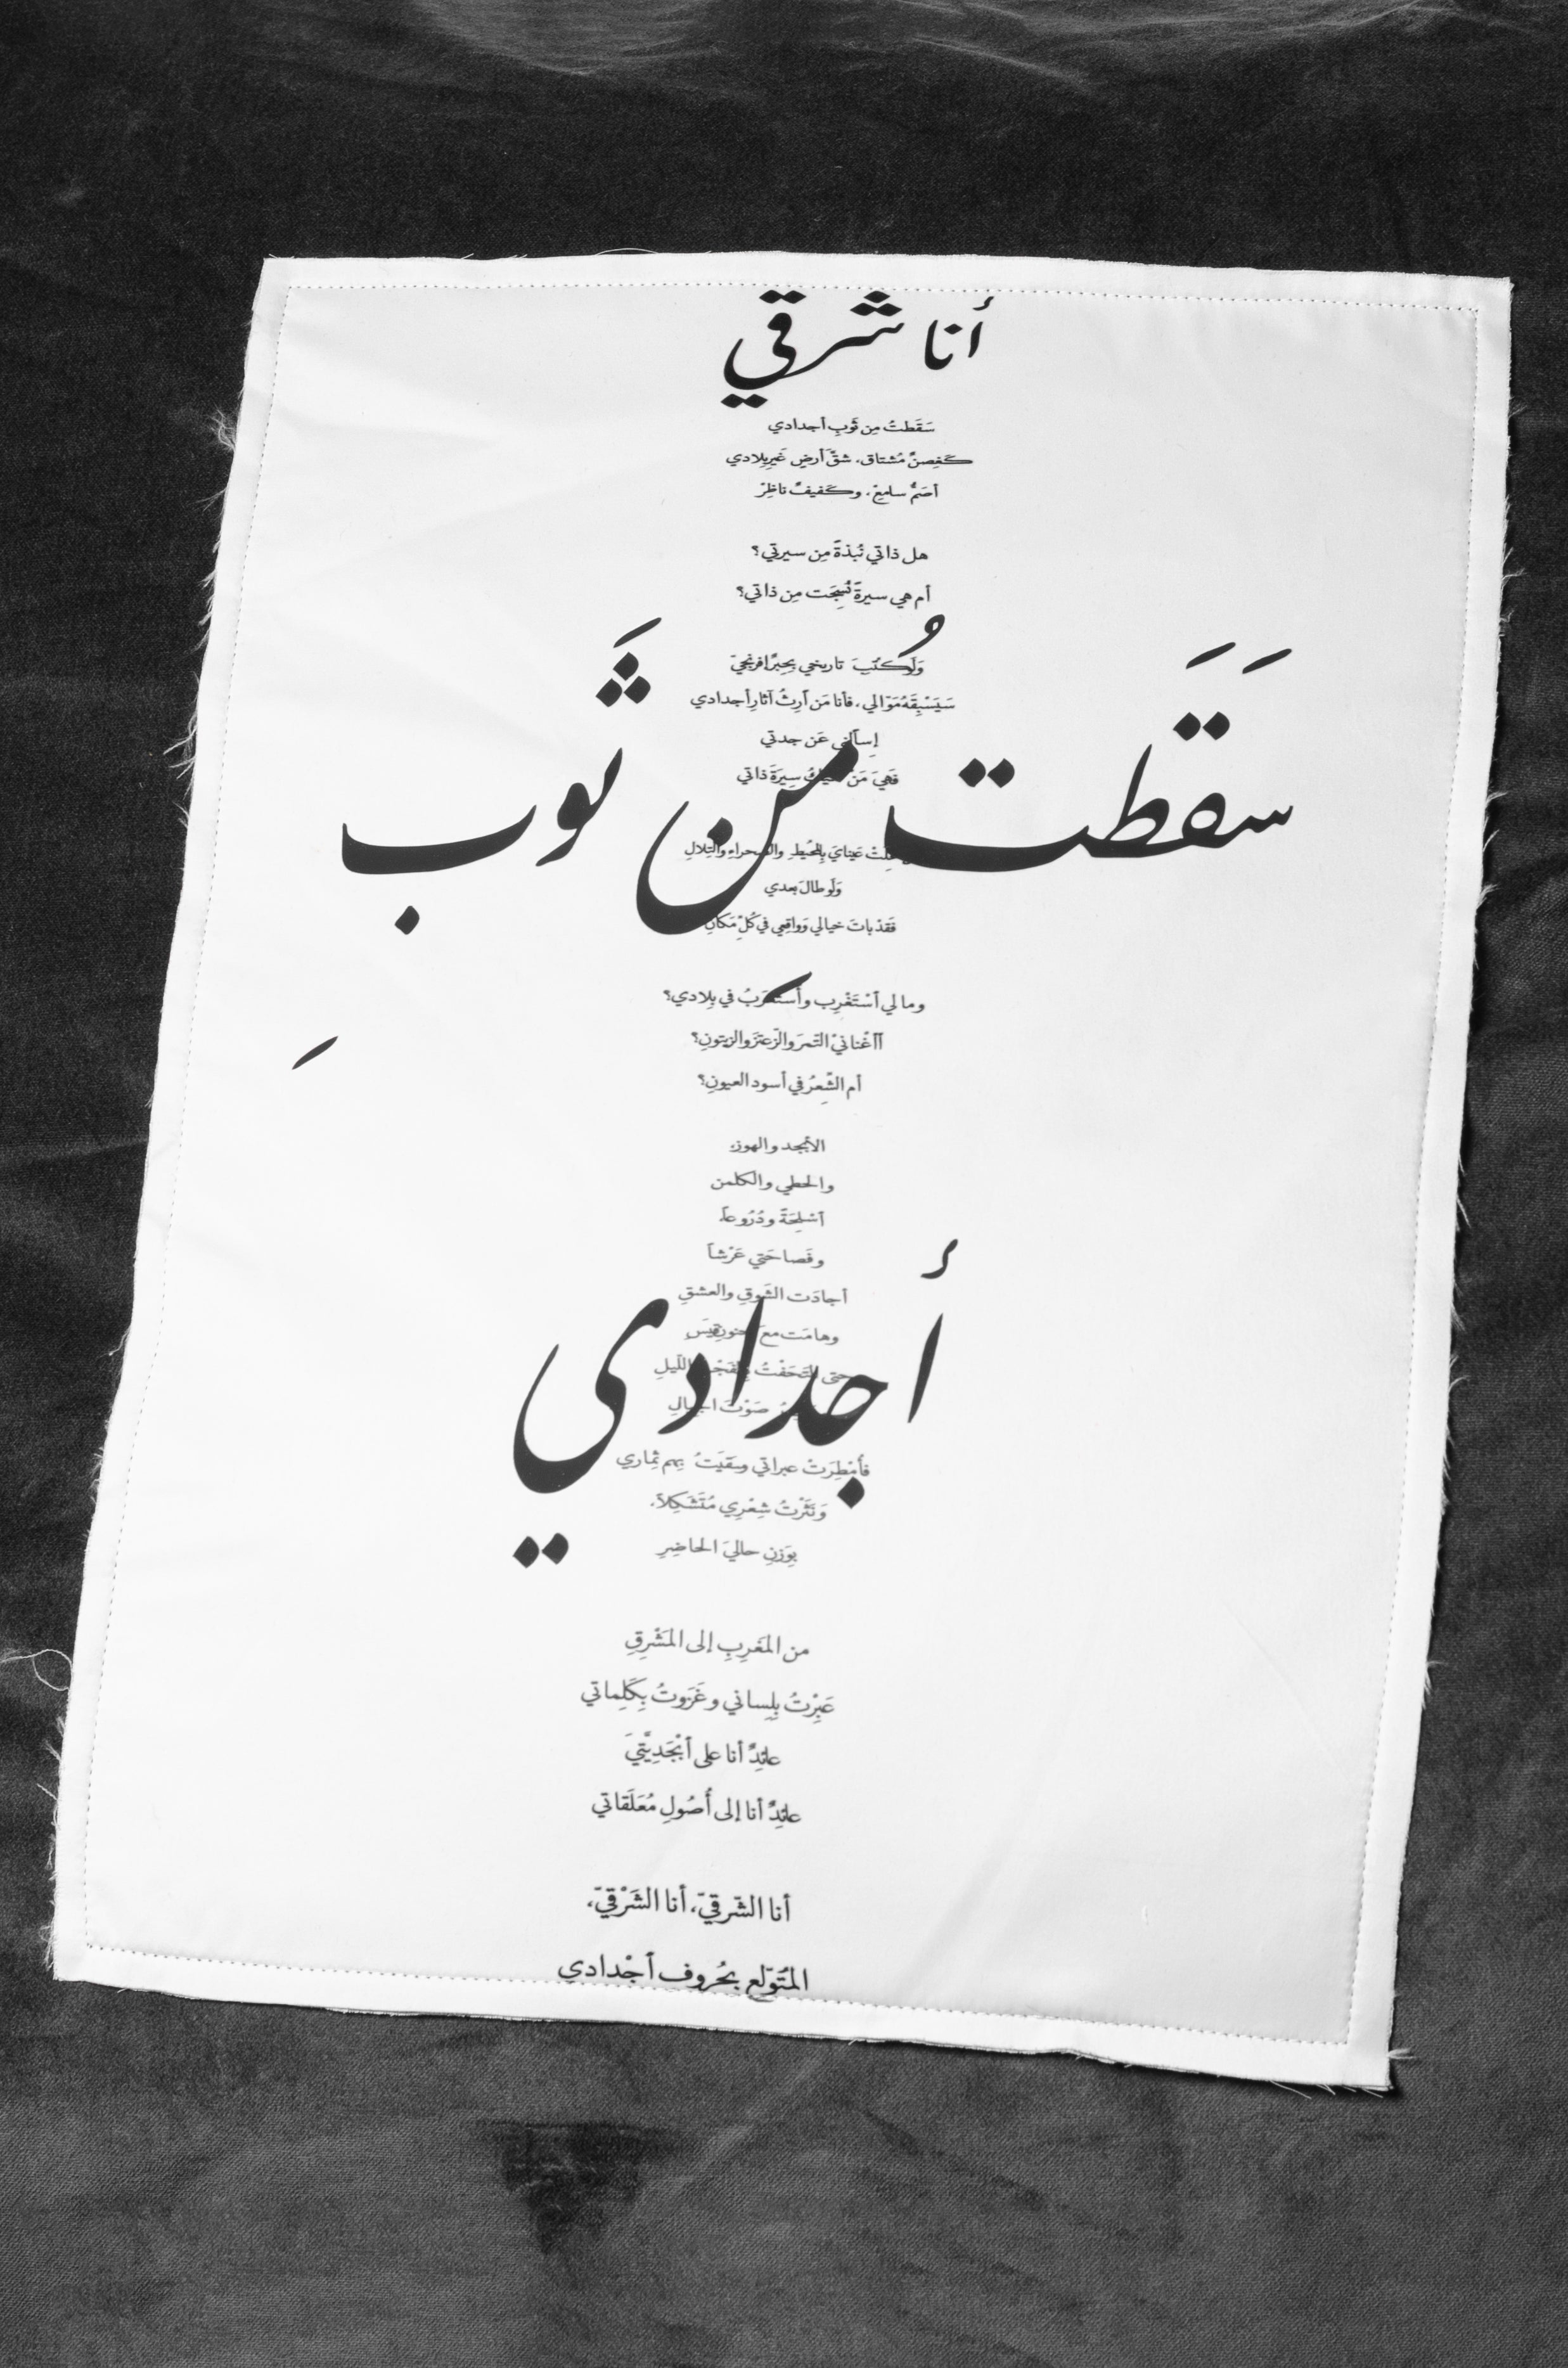 أنا شرقي
سَقَطتُ مِن ثَوبِ أجدادي
كَغِصنٌ مُشتاق، شقَّ أرضِ غَيرِ بِلادي
أصَمٌ سامِعْ، وكَفيفٌ ناظِرْ
هل ذاتي نُبذةً مِن سيرتي؟
أم هي سيرةً نُسِجَت مِن ذاتي؟
وَلَو كُتَبَ تاريخي بِحِبرٌ إفرنجيّ
سَيَسْبِقَهُ مَوّالي، فأنا مَن أرِثُ آثارِ أجدادي
إسألني عَن جدتي
فَهِيَ مَن سِيرَةَ ذاتي
سَقَطتُ مِن ثَوبِ
عَينايَ بِالمُحيطِ والصحراءِ والتِلالِ
وَلَو طالَ بعدي
فَقَدْ باتَ خيالي وَواقِعِي في كُلِّ مَكانِ
وما لي أسْتَغْرِب وأستَغرَبُ في بِلادي؟
أأغْنانيْ التّمرَ والزّعتَرَ والزيتونِ؟
أم الشِّعرُ في أسود العيونِ؟
الأبجد والهوزِ
والحطي والكلمن
أسْلِحَةً ودُرُوعاً
وفَصاحَتي عَرْشاً
أجادَت الشَوقِ والعشقِ
وهامَت معَ قيسَ
حتى الليلِ
أجدادي
صَوْتَ الجبالِ
فأمْطِرَتْ عبراتي وسقيَتُ بِهم ثِماري
وَنَثَرْتُ شِعْرِي مُتَشَكِلاً،
بِوَزنِ حاليَ الحاضِرِ
من المَغرِبِ إلى المَشْرِقِ
عَبِرْتُ بِلِساني وغَزَوتُ بِكَلِماتي
عائِدٌ أنا على أبْجَدِيَّتيَ
عائِدٌ أنا إلى أُصُولِ مُعَلَقاتي
أنا الشّرقيّ، أنا الشَرْقيّ،
المُتَوّلع بحُروف أجْدادي